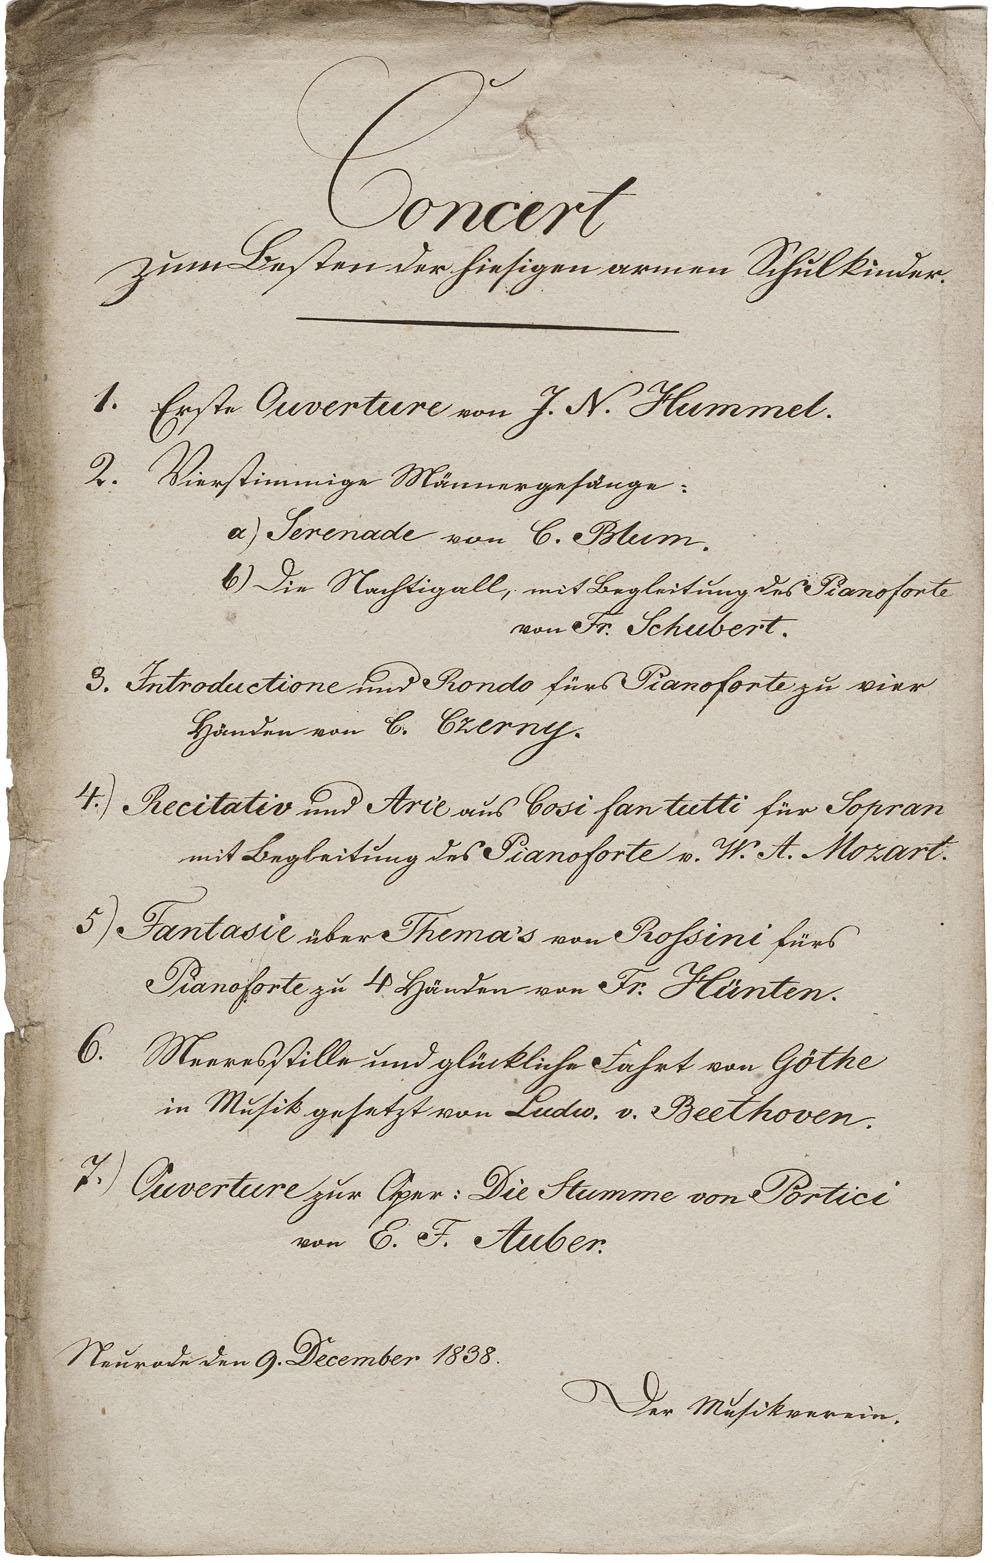 Concert
zum Besten der hiesigen armen Schulkinder.
1. Erste Ouverture von J. N. Hummel.
2. Vierstimmige Männergesänge:
a) Serenade von C. Blum.
b) Die Nachtigall, mit Begleitung des Pianoforte
von Fr. Schubert.
3. Introductione und Rondo fürs Pianoforte zu vier
Händen von C. Czerny.
4.) Recitativ und Arie aus Cosi fan tutti für Sopran
mit Begleitung des Pianoforte v. W. A. Mozart.
5) Fantasie über Thema's von Rossini fürs
Pianoforte zu 4 Händen von Fr. Hünten.
6. Meeresstille und glückliche Fahrt von Göthe
in Musik gesetzt von Ludw. v. Beethoven.
7.) Ouverture zur Oper: Die Stumme von Portici
von E. F. Auber.
Neurode den 9. December 1838.
Der Musikverein.